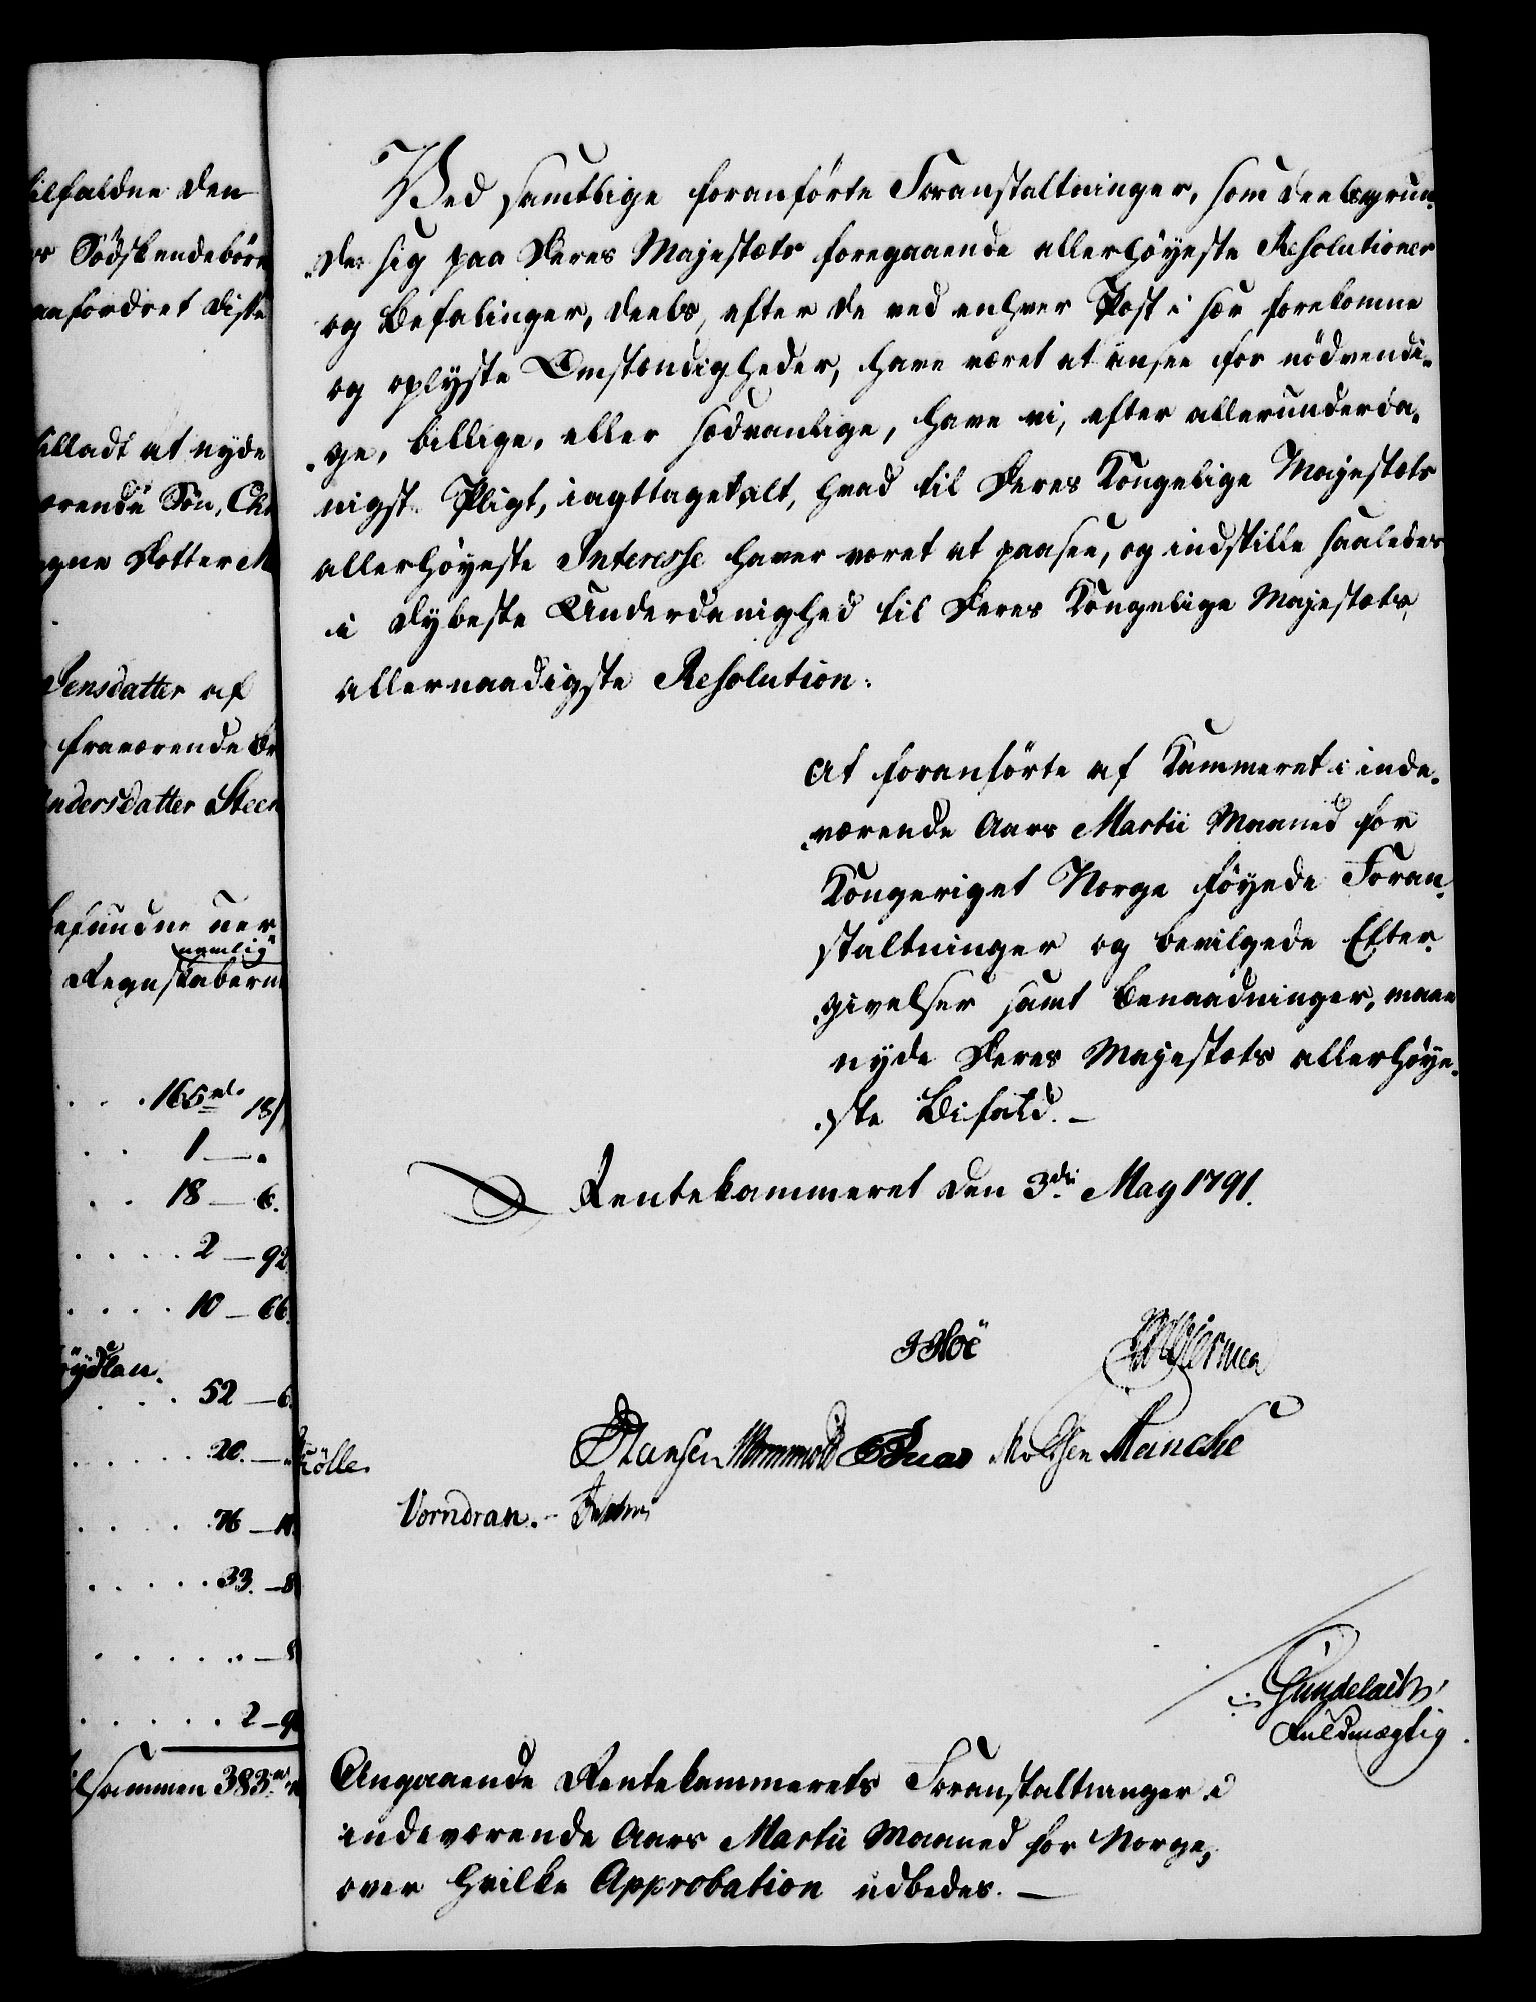 ilfaldne den
Södskendebörn
anfordret diste
illadt at nyde
ærende Sön, Chr
egne Datter M
Jensdatter af
fraværende
ndersdatter Steen
befundne
nemlig
Regnskaberne
165 rd. 18
1 —
18 — 6.
2 — 92
10 — 66
öydlan.
52 — 6
20. —
76 —
33. — 8
— 8
2 — 9
ilsammen 383 rd
Ved samtlige foranförte Foranstaltninger, som deels grun-
der sig paa Deres Majestæts foregaaende allerhöyeste Resolutioner
og Befalinger, deels, efter de ved enhver Post i sær forekomne
og oplyste Omstændigheder, have været at ansee for nödvendi-
ge, billige, eller sædvanlige, have vi, efter allerunderda-
nigst Pligt, iagttaget alt, hvad til Deres Kongelige Majestæts
allerhöyeste Interesse haver været at paasee, og indstille saaledes
i dybeste Underdanighed til Deres Kongelige Majestæts
allernaadigste Resolution:
At foranförte af Kammeret i inde-
værende Aars Martii Maaned for
Kongeriget Norge föyede Foran-
staltninger og bevilgede Efter-
givelser samt Benaadninger, maae
nyde Deres Majestæts allerhöye-
ste Bifald. —
Rentekammeret den 3die May 1791.
Hoë
Hansen Wormwold Manche
Kölle.
Vorndran.
Gundelach,
Fuldmægtig.
Angaaende Rentekammerets Foranstaltninger i
indeværende Aars Martii Maaned for Norge,
over hvilke Approbation udbedes. —